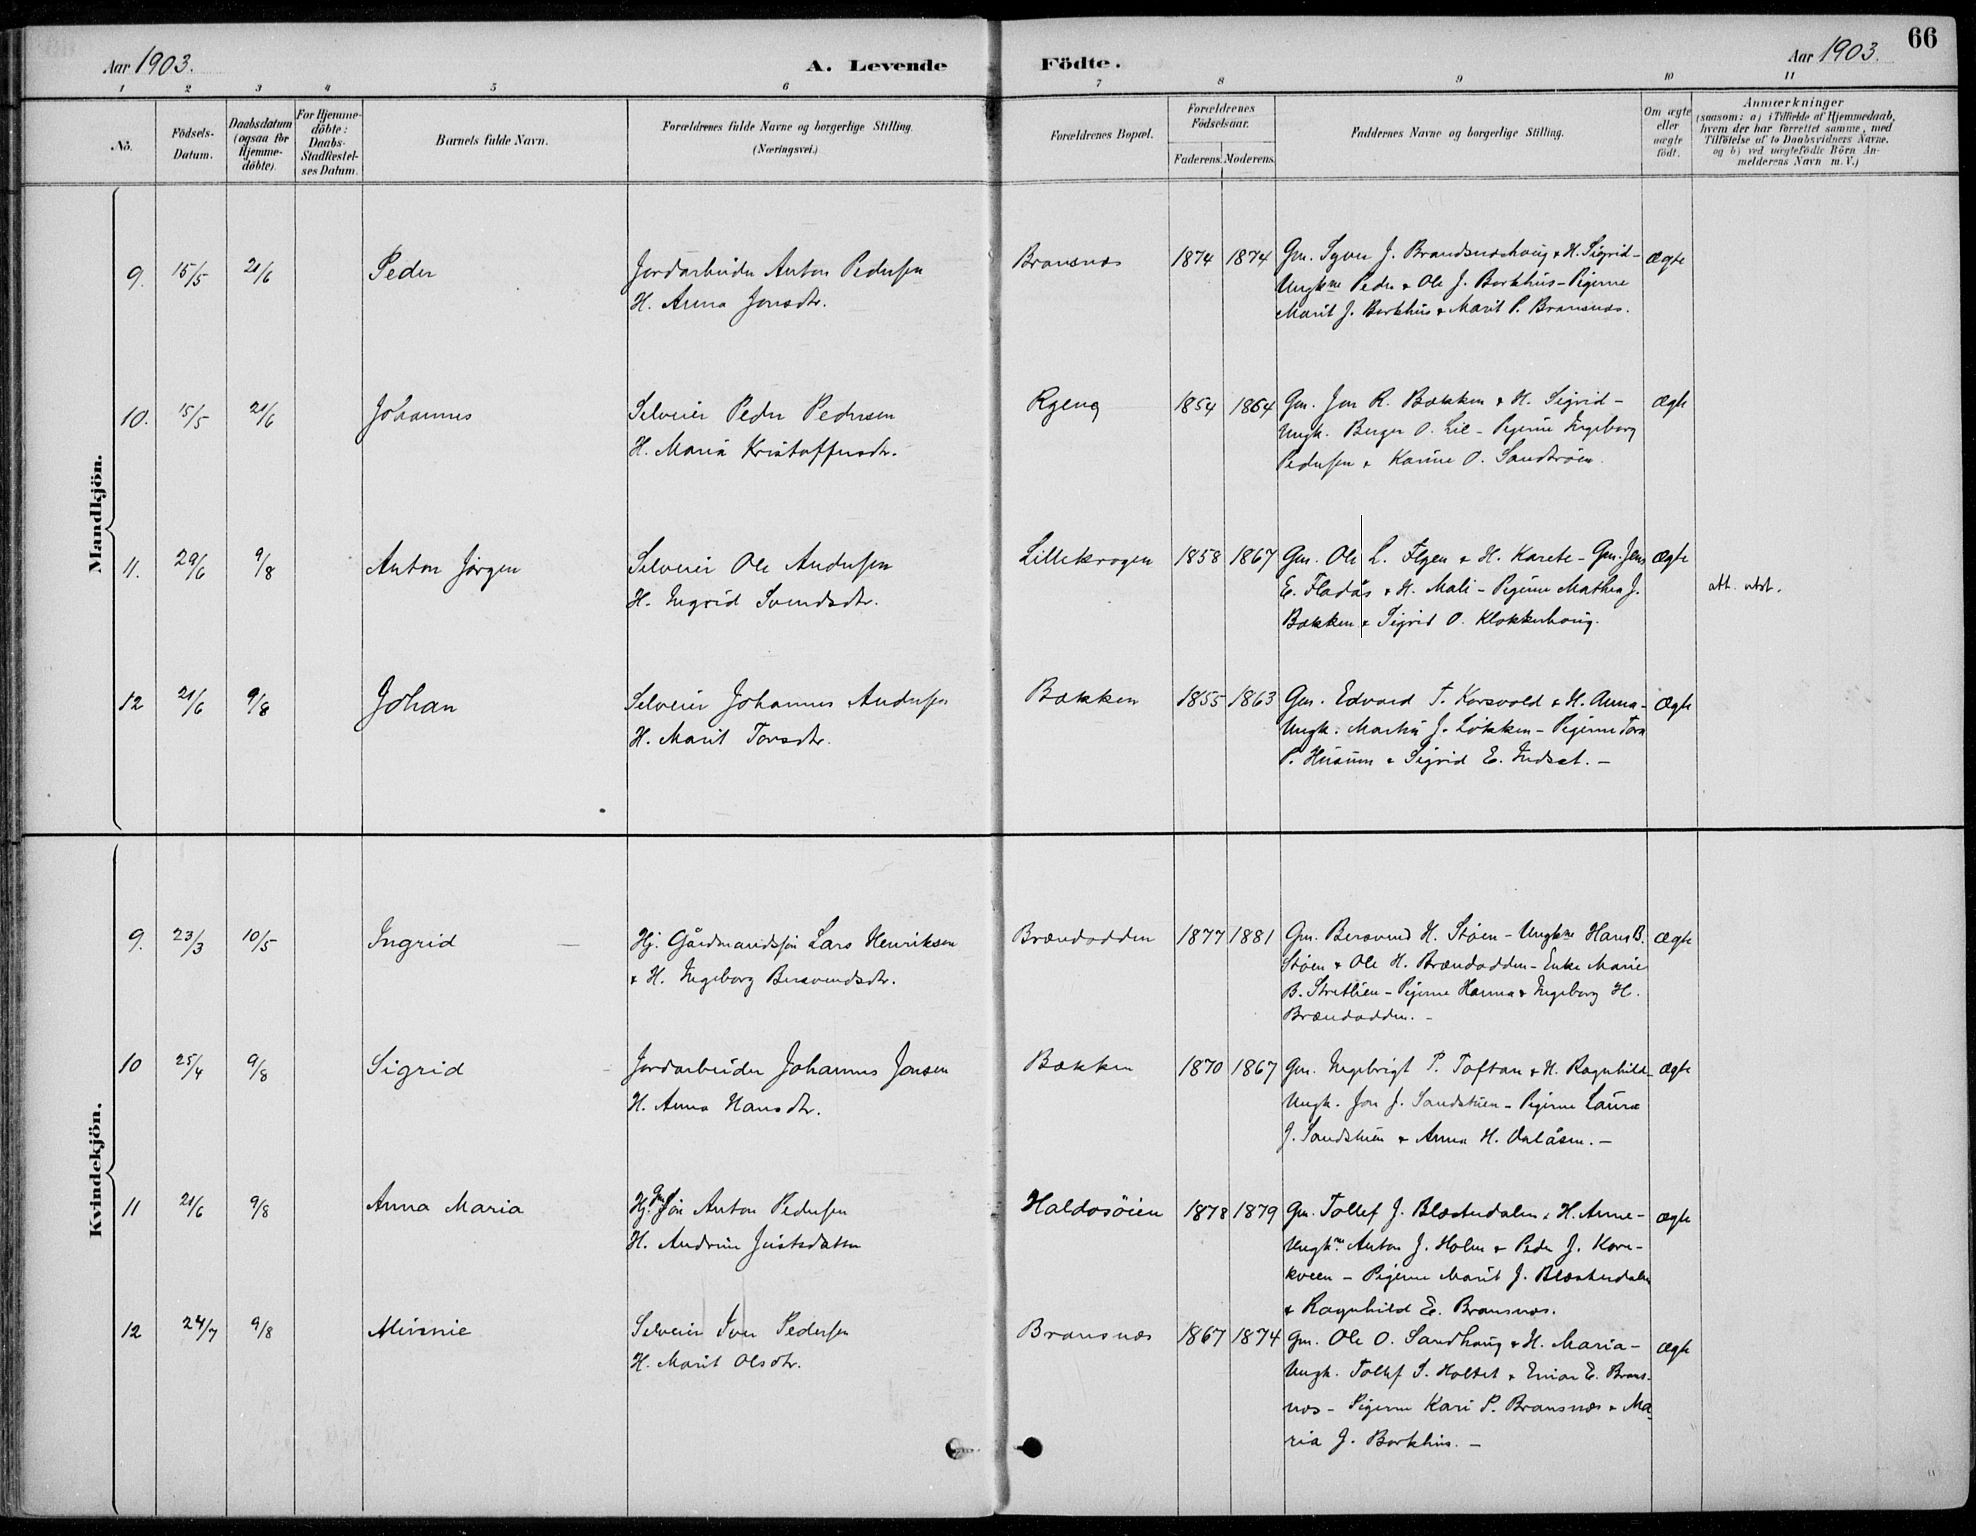 Aar 1903.
A. Levende Födte.
Aar 1903.
66
1 2 3 4 5 6 7 8 9 10 11
No.
Födsels-Datum.
Daabsdatum (ogsaa for Hjemme-döbte).
For Hjemme-döbte: Daabs-Stadfæstel-ses Datum.
Barnets fulde Navn.
Forældrenes fulde Navne og borgerlige Stilling. (Næringsvei.)
Forældrenes Bopæl.
Forældrenes Födselsaar.
Faderens. Moderens.
Faddernes Navne og borgerlige Stilling.
Om ægte eller uægte födt.
Anmærkninger
(saasom: a) i Tilfælde af Hjemmedaab,
hvem der har forrettet samme, med
Tilföielse af to Daabsvidners Navne.
og b) ved uægtefödte Börn An-
melderens Navn m. V.)
Mandkjön.
9. 15/5 21/6 Peder Jordarbeider Anton Pedersen Bransnæs 1874 1874 Gm. Syver J. Brandsnæshaug & H. Sigrid- Ægte
H. Anna Jonsdtr. Ungkne Peder & Ole J. Barkhus - Pigerne
Marit J. Barkhus & Marit P. Bransnæs.
10. 15/5 21/6 Johannes Selveier Peder Pedersen Rgeng 1854 1864 Gm. Jon R. Bakken & H. Sigrid - Ægte
H. Maria Kristoffersdtr. Ungk. Berger O. Lie - Pigerne Ingeborg
Pedersen & Karine O. Sandbröen.
11. 29/6 9/8 Anton Jörgen Selveier Ole Andersen Lillekrogen 1858 1867 Gm. Ole L. Flgen & H. Karete - Gm. Jens Ægte
H. Ingrid Svendsdtr. E. Fladås & H. Mali - Pigerne Mathea J. att. utst.
Bakken & Sigrid O. Klokkerhaug.
12 21/6 9/8 Johan Selveier Johannes Andersen Bakken 1855 1863 Gm. Edvard T. Korsvold & H. Anna- Ægte
H. Marit Torsdtr. Ungk. Martin J. Lökken - Pigerne Tora
P. Husum & Sigrid E. Indset. -
Kvindekjön.
9. 23/3 10/5 Ingrid Hj. Gårdmandssön Lars Henriksen Brændodden 1877 1881 Gm. Beravend H. Stöen - Ungkne Hans B. Ægte
& H. Ingeborg Beravendsdtr. Stöen & Ole H. Brændodden - Enke Marie
B. Stretlien - Pigerne Hanna & Ingeborg H.
Brændodden. -
10 25/4 9/8 Sigrid Jordarbeider Johannes Jonsen Bakken 1870 1867 Gm. Ingebrigt P. Toftan & H. Ragnhild- Ægte
H. Anna Hansdtr. Ungk. Jon J. Sandstuen - Pigerne Laura
J. Sandstuen & Anna H. Dalåsen. -
11 21/6 9/8 Anna Maria Hj. Gm. Sön Anton Pedersen Haldosöien 1878 1879 Gm. Tollef J. Blæsterdalen & H. Anne- Ægte
H. Andrine Justsdatter Ungkne Anton J. Holm & Peder J. Korn-
kveen - Pigerne Marit J. Blæsterdalen
& Ragnhild E. Bransnæs.
12 24/7 9/8 Minnie Selveier Iver Pedersen Bransnæs 1867 1874 Gm. Ole O. Sandhaug & H. Maria - Ægte
H. Marit Olsdtr. Ungk. Tollef S. Holtet & Einar E. Brans-
næs - Pigerne Kari P. Bransnæs & Ma-
ria J. Barkhus. -